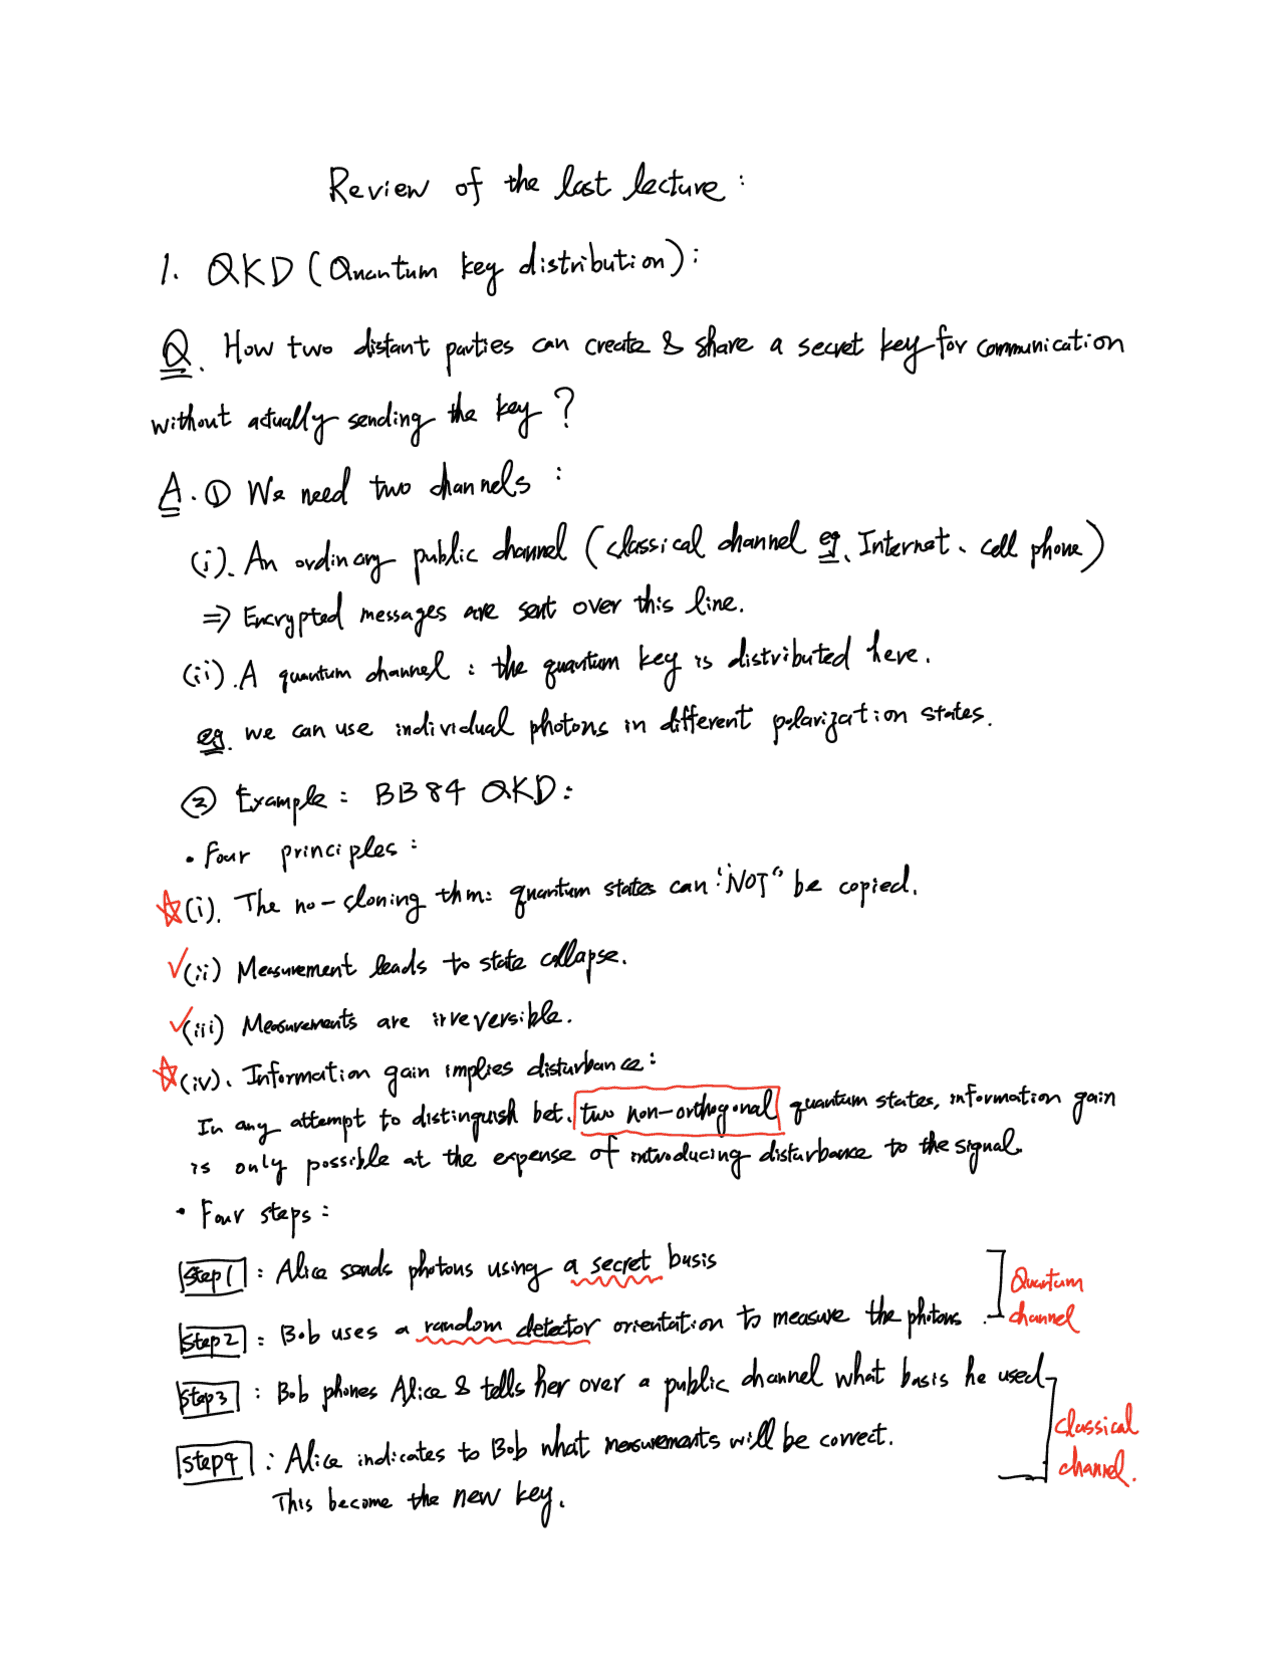 Review of the last lecture:
1. QKD (Quantum key distribution):
Q. How two distant parties can create & share a secret key for communication
without actually sending the key?
A. ① We need two channels:
(i). An ordinary public channel (classical channel eg. Internet、cell phone)
⇒ Encrypted messages are sent over this line.
(ii). A quantum channel: the quantum key is distributed here.
eg. we can use individual photons in different polarization states.
② Example: BB84 QKD:
• Four principles:
☆(i). The no-cloning thm: quantum states can "NOT" be copied.
✓(ii) Measurement leads to state collapse.
✓(iii) Measurements are irreversible.
☆(iv). Information gain implies disturbance:
In any attempt to distinguish bet. two non-orthogonal quantum states, information gain
is only possible at the expense of introducing disturbance to the signal.
• Four steps:
Step1: Alice sends photons using a secret basis
Step2: Bob uses a random detector orientation to measure the photons.
Quantum
channel
Step3: Bob phones Alice & tells her over a public channel what basis he used
Step4: Alice indicates to Bob what measurements will be correct.
This become the new key.
Classical
channel.